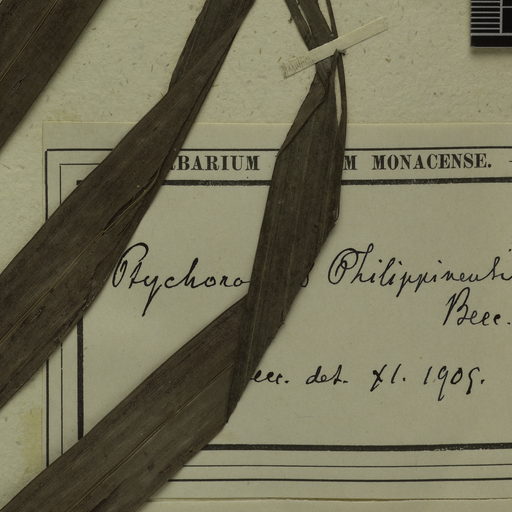 RBARIUM M MONACENSE.
Ptychora s Philippinensi
Becc.
ecc. det. XI. 1909.